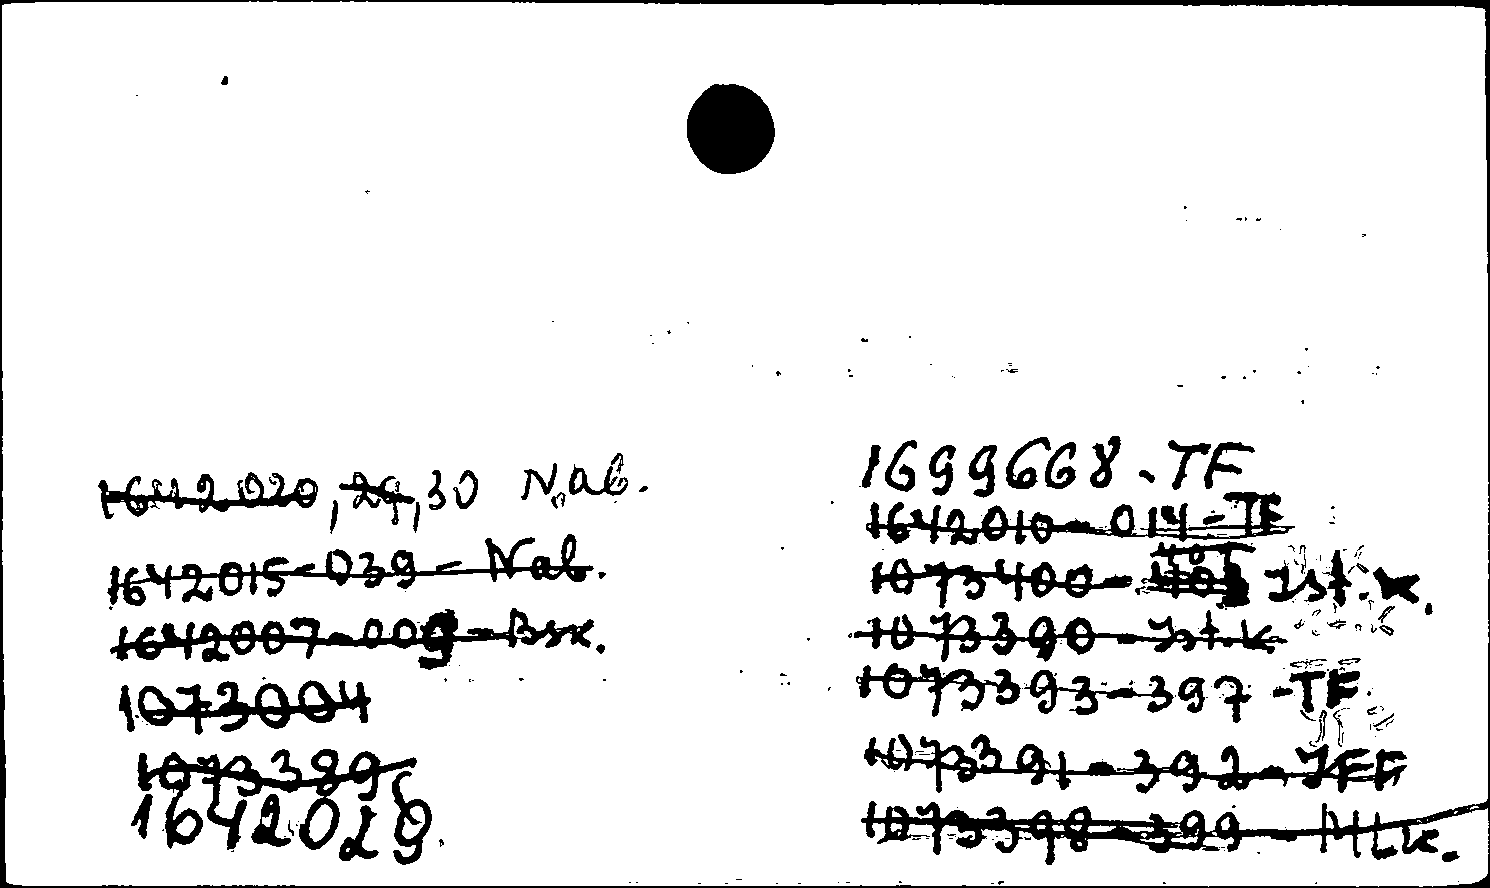 1642020, 29, 30 Nab.
1642015-039 - Nab.
1642007-009 - Bsk.
1073004
1073389
1642029
1699668 - TF
1642010 - 014 - TF
401
1073400 - Ist. k.
1073390 - Ist. k
1073393 - 397 - TF
1073391 - 392 - JFF
1073398 - 399 - MLk.